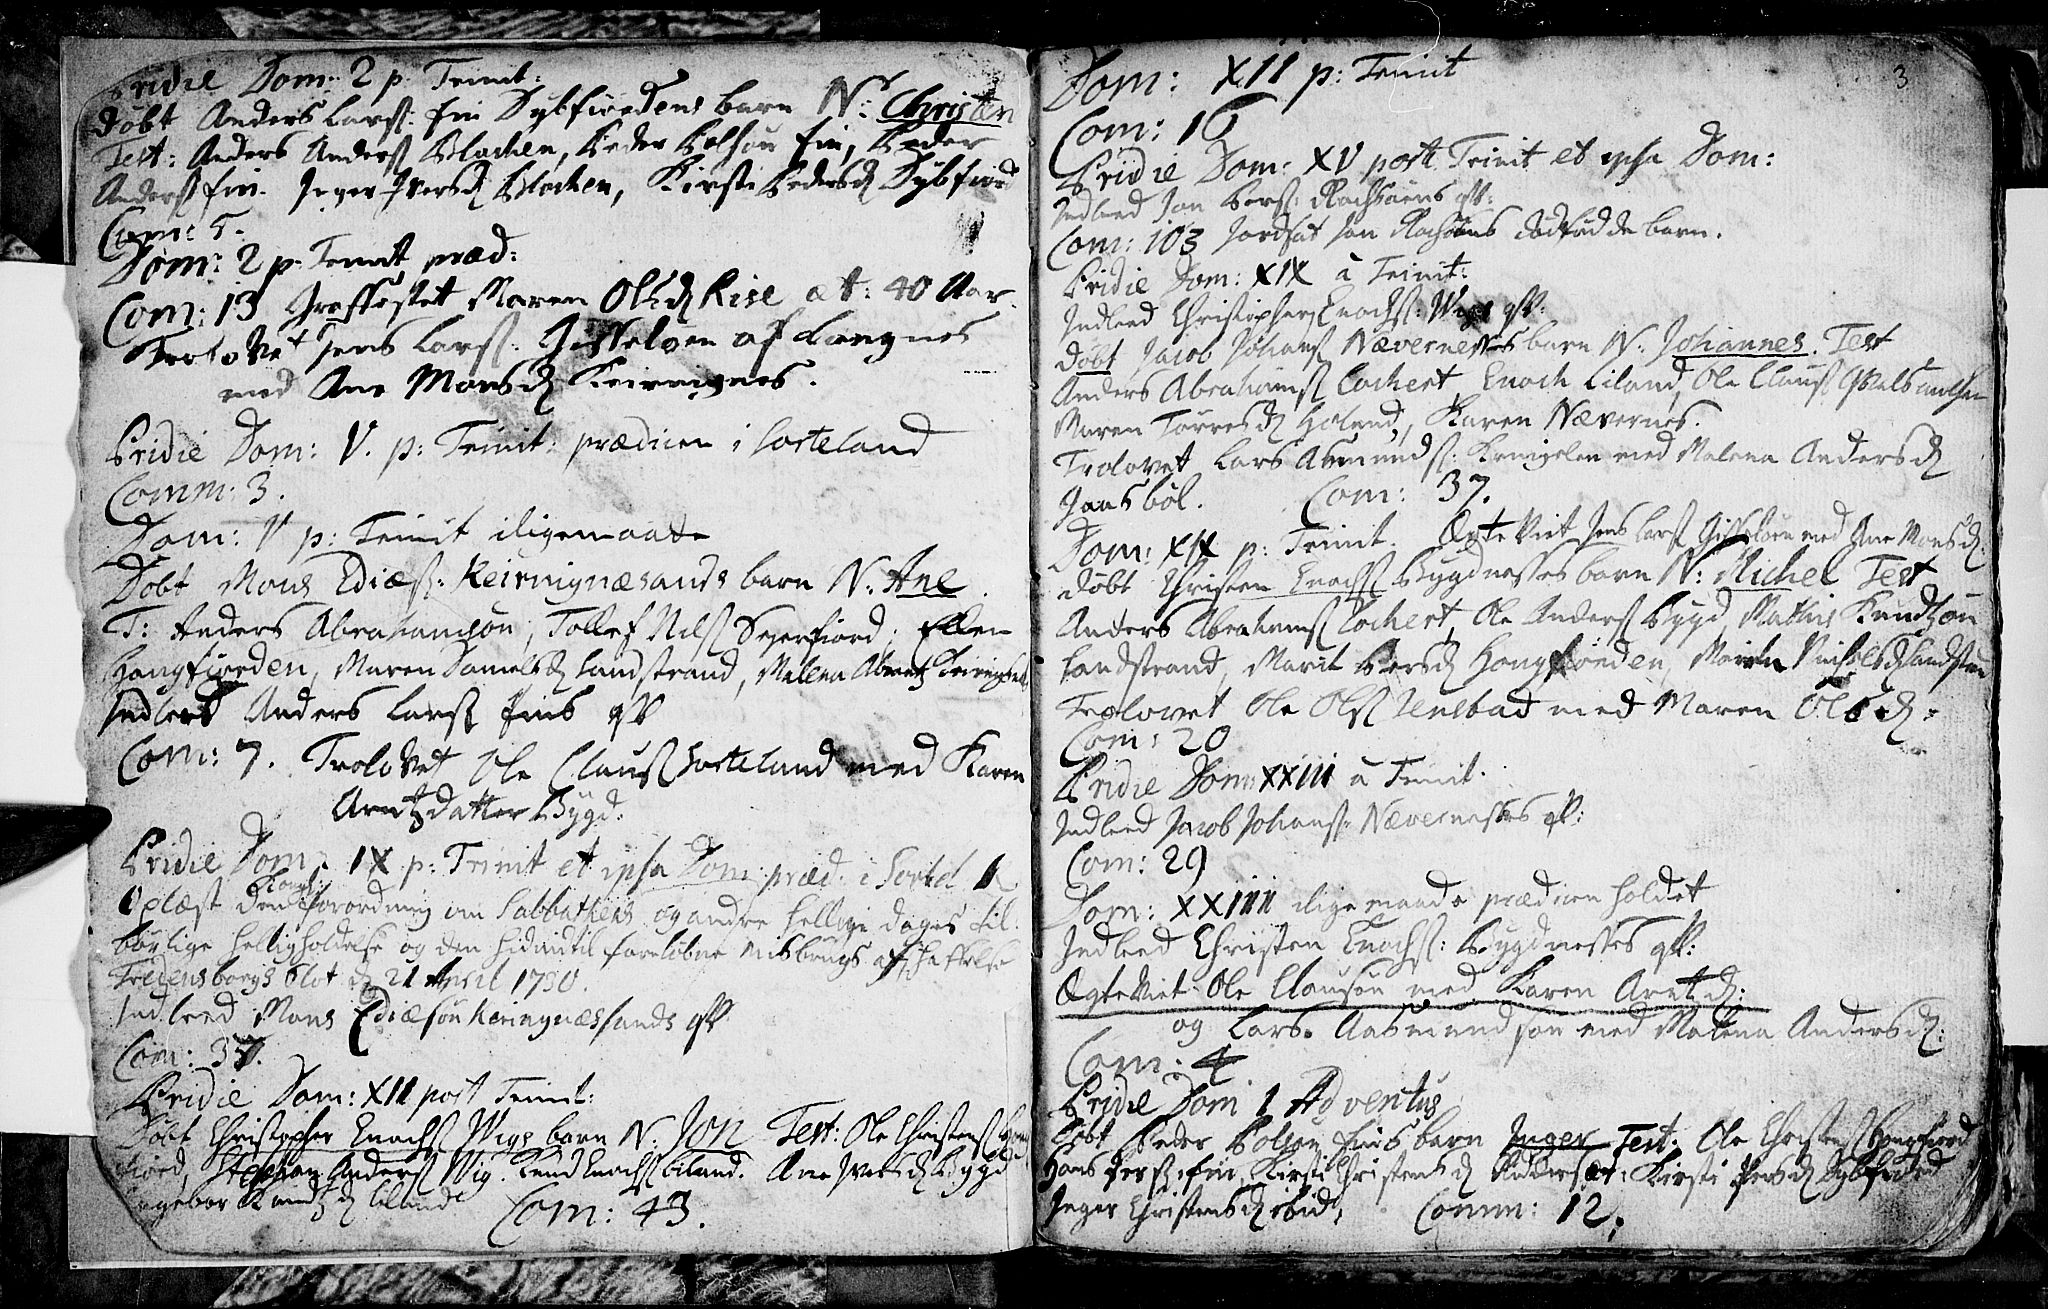 Pridie Dom: 2 p. Trinit:
Døbt Anders Larss: fin Dybfiordens barn N: Christen
Test: Anders Anderss Blochen, Peder Polsøn fin, Peder
Anderss fin. Inger Iversd Blochen, Kirsti Pedersd Dybfiord
Com: 5.
Dom: 2 p. Trinit, præd:
Com: 13 Graffæstet Maren Olsd Rise æt: 40 Aar.
Trolovet Jens Larss: Gisseløen af Langnes
med Ane Monsd Keiringnes.
Pridie Dom: V. p: Trinit: prædicen i Sorteland
Comm: 3.
Dom: V p: Trinit iligemaade
Døbt Mons Ediæss: Keiringnæsands barn N. Ane.
T: Anders Abrahamsøn, Tollef Nilss Sejerfiord, Ellen
Hongfiorden, Maren Danielsd Landstrand, Malena
Indleed Anders Larss fins qv
Com: 7. Trolovet Ole Clauss Sorteland med Karen
Arntzdatter Bygd.
Pridie Dom: IX p: Trinit et ipsa Dom: præd: i Sortel
Oplæst den Kongl: forordning om Sabbathens og andre hellige dages til
børlige helligholdelse og den hidindtil foreløbne misbrugs afskaffelse
Fredensborgs Slot d 21 April 1730.
Indleed Mons Ediæsøn Keringnæssands qv
Com: 37.
Pridie Dom: XII post Trinit:
Døbt Christopher Enochss Wigs barn N. Jon Test: Ole Christenss Hong
fiord, Stephan Anderss Wig. Knud Enochss Liland. Ane Iversd Bygd
Ingebor Knudtzd Liland Com: 43.
3
Dom: XII p: Trinit
Com: 16
Pridie Dom: XV post Trinit et ipsa Dom:
Indleed Jon Perss: qv:
Com: 103 Jordsat Jon dødfødde barn.
Pridie Dom: XIX à Trinit:
Indleed Christopher Enochss: Wigs qv:
Døbt Jacob Johanss Nævernesses barn N. Johannes. Test
Anders Abrahamss Lochert, Enoch Liland, Ole Clauss
Maren Torresd Holand, Karen Nævernes.
Trolovet Lars Asmundss: Kringelen med Malena Andersd
Jaasbøl. Com: 37.
Dom: XIX p: Trinit. Ægte Viet Jens Larss Gisseløen med Ane Monsd.
Døbt Christen Enochss Bygdnesses barn N: Michel Test
Anders Abrahamss Lochert, Ole Anderss Bygd, Mathis Knudsøn
Landstrand, Marit Persd Hongfiorden, Maren Landstrand
Trolovet Ole Olss Jensbad med Maren Olsd.
Com: 20
Pridie Dom: XXIII à Trinit.
Indleed Jacob Johanss: Nævernesses qv:
Com: 29
Dom: XXIIII iligemaade prædicen holdet
Indleed Christen Enochss: Bygdnesses qv:
Ægte Viet Ole Clausøn med Karen Arntzd:
og Lars Aasmundsøn med Malena Andersd:
Com: 4
Pridie Dom 1 Adventus
Døbt Peder Polsøn fins barn Inger Test: Ole Christenss Hongfiord
Hans Perss: fin, Kirsti Christensd Kirsti Persd Dybfiord
Inger Christensd ibid, Comm: 12.